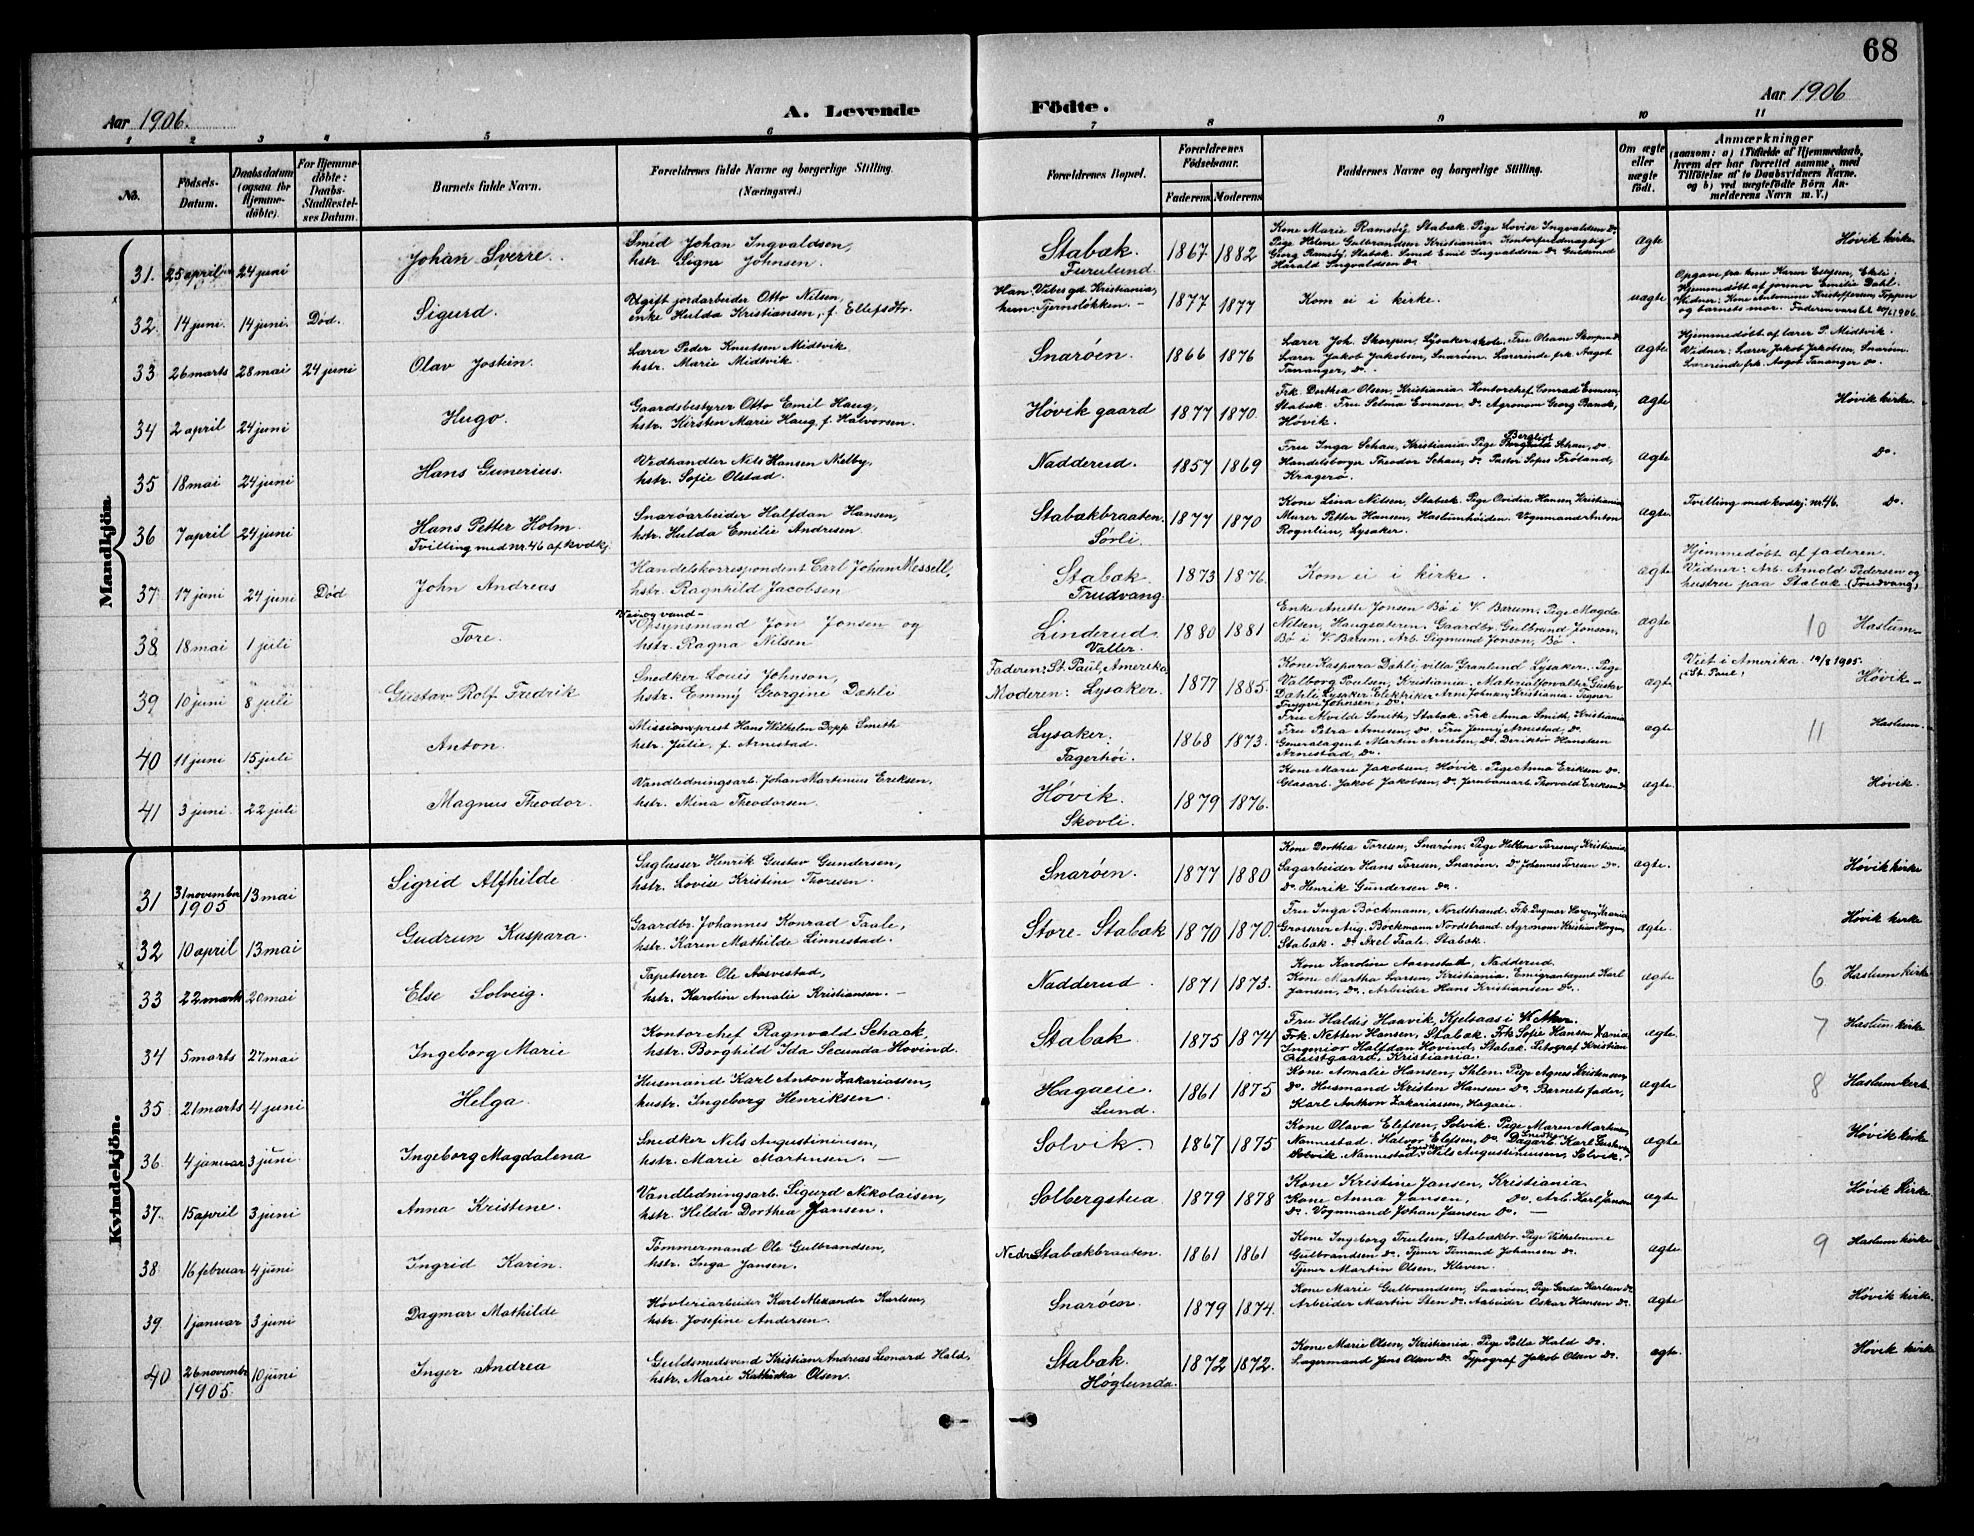 68
Aar 1906.
A. Levende
Födte.
Aar 1906
1 2 3 4 5 6 7 8 9 10 11
No.
Födsels-Datum.
Daabsdatum (ogsaa for Hjemmedöbte).
For Hjemmedöbte: Daabs-Stadfæstelses Datum.
Barnets fulde Navn.
Forældrenes fulde Navne og borgerlige Stilling. (Næringsvei.)
Forældrenes Bopæl.
Forældrenes Födselsaar.
Faderens Moderens
Faddernes Navne og borgerlige Stilling.
Om ægte eller uægte födt.
Anmærkninger
(saasom: a) i Tilfælde af Hjemmedaab, hvem der har forrettet samme, med Tilföielse af to Daabsvidners Navne. og b) ved uægtefödte Börn Anmelderens Navn m. V.)
Mandkjön
31. 25 april 24 juni Johan Sverre. Smed Johan Ingvaldsen, Stabæk. 1867 1882 Kone Marie Ramsøij Stabæk. Pige Lovise Ingvaldsen Do. ægte Høvik kirke
hstr. Signe Johnsen. Furulund Pige Helene Gulbrandsen Kristiania. Kontorfuldmægtig
Georg Ramsøij, Stabæk. Smed Emil Ingvaldsen Do. Guldsmed
Harald Ingvaldsen Do.
32. 14 juni. 14 juni. Død. Sigurd. Ugift jordarbeider Otto Nilsen, Han: Vibesgd. Kristiania, 1877 1877 Kom ei i kirke. uægte
enke Hulda Kristiansen, f. Ellefsdtr. hun: Tjernsløkken. Hjemmedøbt af jormor Emilie Dahl.
Vidner: Kone Antomine Kristoffersen, Toppen
og barnets mor. Faderen varslet 1906.
33 26 marts 28 mai 24 juni Olav Jostein. Lærer Peder Knutsen Midtvik Snarøen. 1866 1876 Lærer Joh. Skorpen, Lysaker skole. Fru Oleane Skorpen Do. ægte Hjemmedøbt af lærer P. Midtvik.
hstr. Marie Midtvik. Lærer Jakob Jakobsen, Snarøen. Lærerinde frk. Aagot Vidner: Lærer Jakob Jakobsen, Snarøen.
Tananger, Do. Lærerinde frk. Aagot Tananger Do.
34 2 april 24 juni Hugo. Gaardsbestyrer Otto Emil Haug, Høvik gaard 1877 1870. Frk. Dorthea Olsen, Kristiania. Kontorchef Conrad Evensen, ægte Høvik kirke.
hstr. Kirsten Marie Haug, f. Halvorsen. Stabæk. Fru Selma Evensen Do. Agronom Georg Ranck,
Høvik.
35 18 mai 24 juni Hans Gunerius. Vedhandler Nils Hansen Melby, Nadderud. 1857 1869 Fru Inga Schau, Kristiania. Pige Bergliot Schau, Do. ægte Do.
hstr. Sofie Olstad. Handelsborger Theodor Schau, Do. Pastor Sofus Trøland,
Kragerø.
36 7 april 24 juni Hans Petter Holm. Snarøarbeider Halfdan Hansen, Stabækbraaten. 1877 1870 Kone Lina Nilsen, Stabæk. Pige Ovidia Hansen, Kristiania ægte Tvilling med kvdkj. nr. 46. Do.
Tvilling med nr. 46 af kvdkj. hstr. Hulda Emilie Andresen. Sørli. Murer Petter Hansen, Haslumhøiden. Vognmand Anton
Rognlien, Lysaker.
37 17 juni 24 juni Død John Andreas Handelskorrespondent Carl Johan Messell, Stabæk 1873 1876. Kom ei i kirke. ægte Hjemmedøbt af faderen.
hstr. Ragnhild Jacobsen Trudvang. Vidner: Arb. Arnold Pedersen og
hustru paa Stabæk (Trudvang)
38 18 mai 1 juli Tore. Vei og vand-
Opsynsmand Jon Jonsen og Linderud. 1880 1881 Enke Anette Jonsen Bø i V. Bærum. Pige Magda ægte 10 Haslum-
hstr. Ragna Nilsen. Valler. Nilsen, Haugsæteren. Gaardbr. Gulbrand Jonson,
Bø i V. Bærum. Arb. Sigmund Jonson, Bø
39 10 juni 8 juli Gustav Rolf Fredrik Snedker Louis Johnson, Faderen: St. Paul, Amerika, 1877 1885. Kone Kaspara Dæhli, villa Granlund Lysaker. Pige ægte Viet i Amerika. 1905. Høvik-
hstr. Emmy Georgine Dæhli Moderen: Lysaker. Valborg Poulsen, Kristiania. Materialforvalter Gustav (St. Paul)
Dæhli, Lysaker. Elektriker Arne Johnsen, Kristiania. Tegner
Trygve Johnsen, Do.
40 11 juni 15 juli Anton. Missionsprest Hans Wilhelm Dopp Smith Lysaker. 1868 1873. Fru Alvilde Smith, Stabæk. Frk. Anna Smith, Kristiania ægte 11 Haslum.
hstr. Julie, f. Arnestad. Fagerhøi. Fru Petra Arnesen, Do. Fru Jenny Arnestad, Do.
Generalagent Martin Arnesen, Do. Direktør Hansteen
Arnestad, Do.
41 3 juni 22 juli Magnus Theodor. Vandledningsarb. Johan Martinius Eriksen, Høvik. 1879 1876. Kone Marie Jakobsen, Høvik. Pige Anna Eriksen Do. ægte. Høvik.
hstr. Mina Theodorsen. Skovli. Glasarb. Jakob Jakobsen, Do. Jernbanearb. Thorvald Eriksen Do.
Kvindekjön.
31 31 november 1905 13 mai Sigrid Alfhilde Saglusser Henrik Gustav Gundersen, Snarøen. 1877 1880 Kone Dorthea Toresen, Snarøen. Pige Hellene Toresen, Kristiania, ægte. Høvik kirke
hstr. Lovise Kristine Thoresen. Sagarbeider Hans Toresen, Snarøen. Do Johannes Toresen Do.
Do. Henrik Gundersen Do.
32 10 april 13 mai Gudrun Kaspara. Gaardbr. Johannes Konrad Faale, Store-Stabæk 1870 1870. Fru Inga Bøckmann, Nordstrand. Frk. Dagmar Horgen, Krania ægte. Høvik kirke
hstr. Karen Mathilde Linnestad. Grosserer Aug. Bøckmann Nordstrand. Agronom Kristian Horgen,
Stabæk. Do. Axel Faale. Stabæk.
33 22 mark 20 mai Else Solveig. Tapetserer Ole Aasvestad, Nadderud. 1871 1873. Kone Karoline Aasvestad, Nadderud. ægte 6 Haslum kirke
hstr. Karoline Amalie Kristiansen. Kone Martha Larsen, Kristiania. Emigrantagent Karl
Jansen, Do. Arbeider Hans Kristiansen Do.
34 5 marts 27 mai Ingeborg Marie Kontorchef Ragnvald Schack Stabæk 1875 1874 Fru Haldis Haavik, Kjelsaas i V. Aker. ægte. 7 Haslum kirke
hstr. Borghild Ida Secunda Hovind. Frk. Netten Hansen, Stabæk. Frk. Sofie Hansen Xrania
Ingeniør Halfdan Hovind, Stabæk. Litograf Kristian
Qvistgaard, Kristiania.
35 21 marts 4 juni Helga. Husmand Karl Anton Zakariassen, Hagaeie. 1861 1875 Kone Amalie Hansen, Ihlen. Pige Agnes Kristensen, ægte 8 Haslum kirke
hustr. Ingeborg Henriksen. Lund. Do. Husmand Kristen Hansen Do. Barnets fader,
Karl Anthon Zakariassen, Hagaeie.
36. 4 januar 3 juni. Ingeborg Magdalena Snedker Nils Augustiniusen, Solvik. 1867 1875 Kone Olava Elefsen, Solvik. Pige Maren Martinsen, ægte Høvik kirke
hstr. Marie Martinsen. Nannestad. Halvor Elefsen, Do. Snedker Dagarb. Karl Gustavsen
Solvik. Nannestad. Nils Augustiniusen, Solvik.
37. 15 april 3 juni Anna Kristine. Vandledningsarb. Sigurd Nikolaisen, Solbergstua 1879 1878 Kone Kristine Jansen, Kristiania ægte Høvik Kirke
hstr. Hilda Dorthea Jansen. Kone Anna Jansen, Do. Arb. Karl Jansen
Do. Vognmand Johan Jansen Do.
38 16 februar 4 juni Ingrid Karin. Tømmermand Ole Gulbrandsen, Nedre Stabækbraaten. 1861 1861 Kone Ingeborg Trulsen, Stabækbr. Pige Vilhelmine ægte 9 Haslum kirke
hstr. Inga Jansen. Gulbrandsen Do. Tjener Timand Johansen Do.
Tjener Martin Olsen, Kleven.
39. 1 januar 3 juni Dagmar Mathilde Høvleriarbeider Karl Alexander Karlsen, Snarøen. 1879 1874. Kone Marie Gulbrandsen, Snarøen, Pige Gerda Karlsen Do. ægte Høvik kirke.
hstr. Josefine Andersen. Arbeider Martin Sten Do. Arbeider Oskar Hansen Do.
40 26 novembr 1905 10 juni Inger Andrea Guldsmedsvend Kristian Andreas Leonard Hald, Stabæk. 1872 1872. Kone Marie Olsen, Kristiania. Pige Palla Hald Do. ægte. Høvik kirke
hstr. Marie Kathinka Olsen. Høglunda. Lagermand Jens Olsen Do. Typograf Jakob Olsen Do.